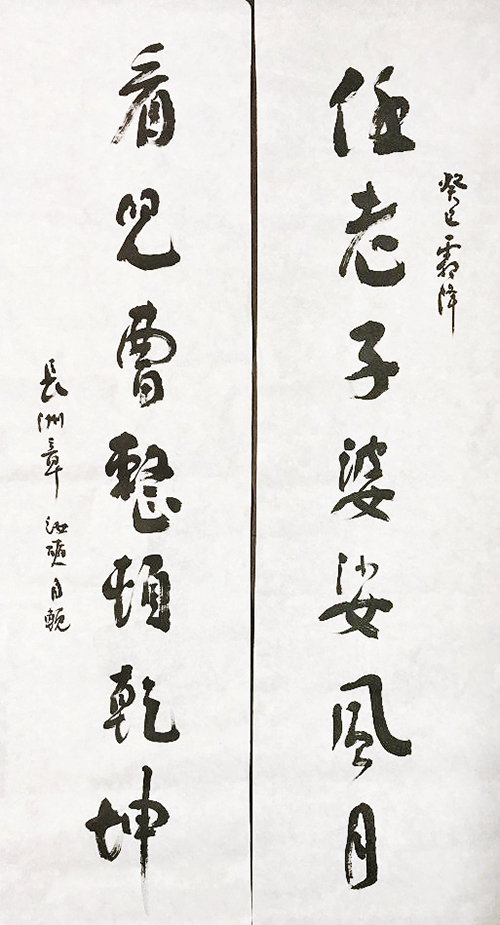 癸巳霜降
任老子婆娑风月
看儿曹整顿乾坤
長洲章汝奭自輓